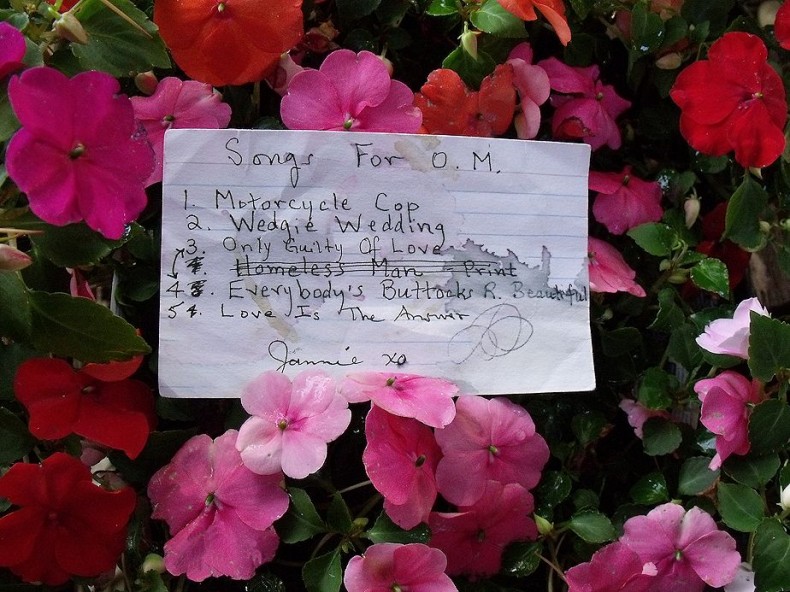 Songs For O. M.
1. Motorcycle Cop
2. Wedgie Wedding
3. Only Guilty Of Love
Homeless Man Print
4. Everybody's Buttocks R. Beautiful
5. Love Is The Answer
Jannie xo